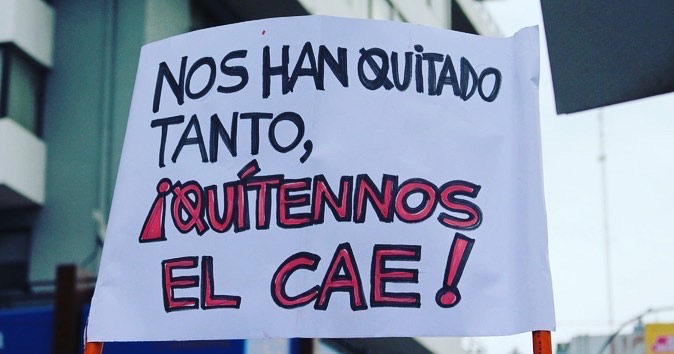 NOS HAN QUITADO
TANTO,
¡QUÍTENNOS
EL CAE!